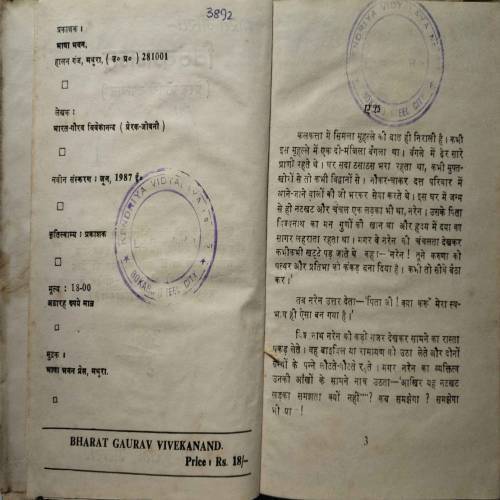 3892
प्रकाशक :
भाषा भवन,
हालन गंज, मथुरा, ( उ० प्र० ) 281001
लेखक :
भारत-गौरव विवेकानन्द ( प्रेरक-जीवनी )
नवीन संस्करण : जून, 1987 ई०
कृतिस्वाम्य : प्रकाशक
मूल्य : 18-00
अठारह रुपये मात्र
मुद्रक :
भाषा भवन प्रेस, मथुरा.
KENDRIYA VIDYALAYA
BOKARO STEEL CITY
BHARAT GAURAV VIVEKANAND.
Price : Rs. 18/-
KENDRIYA VIDYALAYA
STEEL CITY
एक
कलकत्ता में सिमला मुहल्ले की बात ही निराली है। कभी
इस मुहल्ले में एक दो-मंजिला बंगला था। बंगले में ढेर सारे
प्राणी रहते थे। घर सदा ठसाठस भरा रहता था, कभी मुफ्त-
खोरों से तो कभी विद्वानों से। नौकर-चाकर दत्त परिवार में
आने-जाने वालों की जी भरकर सेवा करते थे। इस घर में जन्म
से ही नटखट और चंचल एक लड़का भी था, नरेन। उसके पिता
विश्वनाथ का मन गुणों की खान था और हृदय में दया का
सागर लहराता रहता था। मगर वे नरेन की चंचलता देखकर
कभीकभी खट्टे पड़ जाते थे कहा।—'नरेन ! तूने करुणा को
पत्थर और प्रतिभा को कंकड़ बना दिया है। कभी तो सीधे बैठा
कर।'
तब नरेन उत्तर देता—'पिता जी ! क्या करूं मेरा स्व-
भाव ही ऐसा बन गया है।'
विश्वनाथ नरेन को कड़ी नजर देखकर सामने का रास्ता
पकड़ लेते। वह बाइबिल या रामायण को उठा लेते और दोनों
ग्रन्थों के पन्ने लौटते-लौटते रहते। मगर नरेन का व्यक्तित्व
उनकी आँखों के सामने नाच उठता—'आखिर यह नटखट
लड़का समझता क्यों नहीं—? कब समझेगा ? समझेगा
भी या !
3